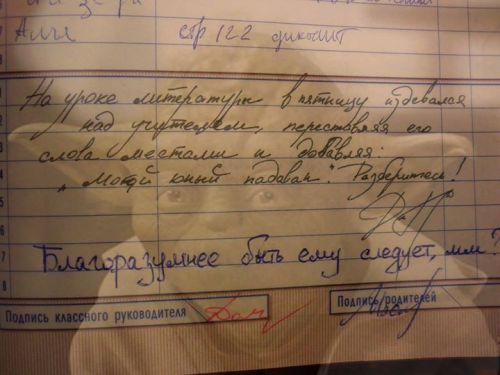 Алг стр 122
На уроке литературы в пятницу издевался
над учителем, переставляя его
слова местами и добавляя:
"Мотай юный падаван". Разберитесь!
Благоразумнее быть ему следует, мм?
Подпись классного руководителя
Подпись родителей